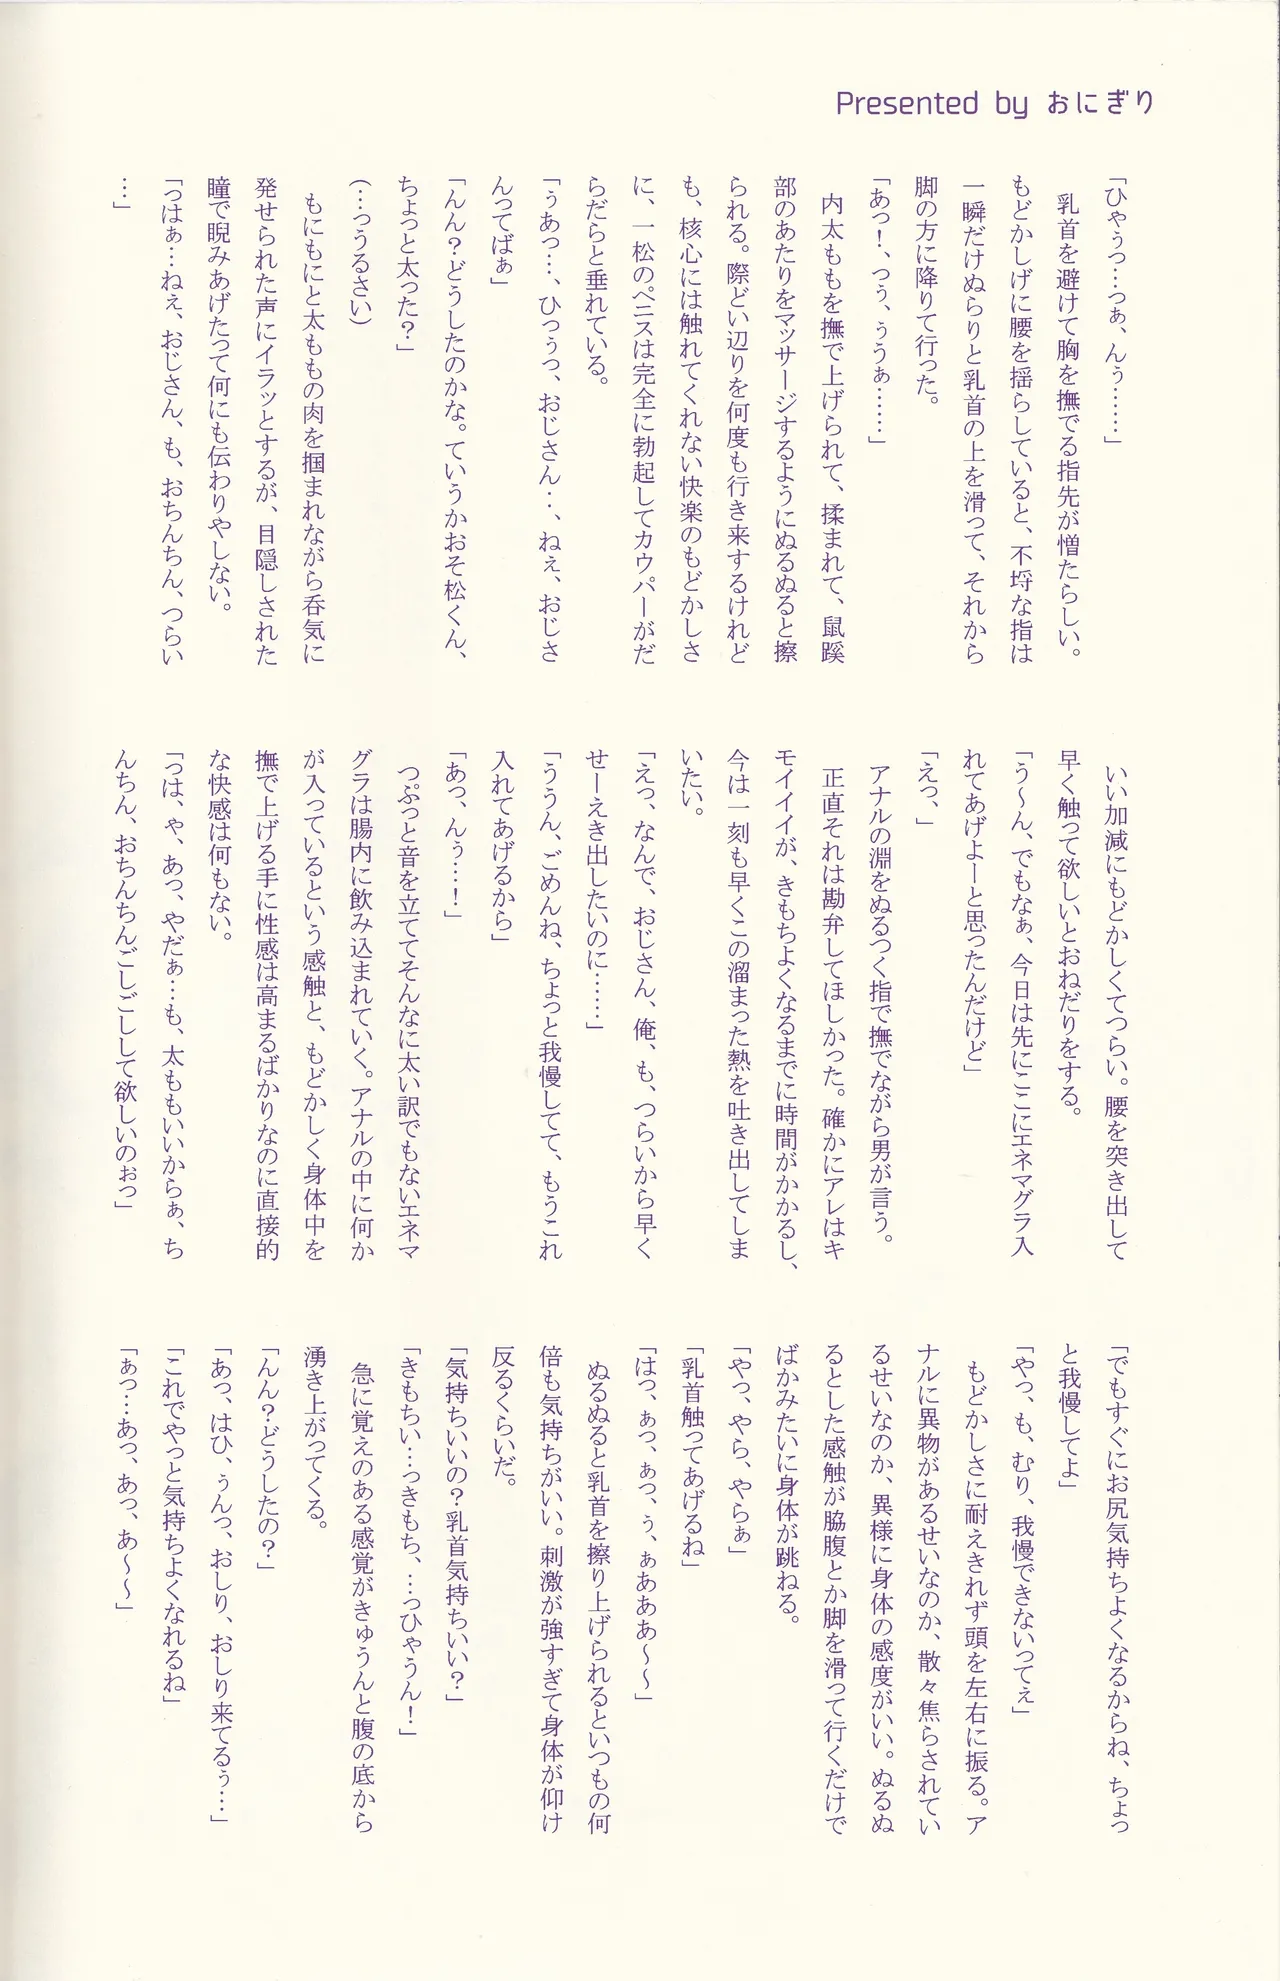 Presented by おにぎり
「ひゃうっ…つぁ、んぅ……」
　乳首を避けて胸を撫でる指先が憎たらしい。
もどかしげに腰を揺らしていると、不埒な指は
一瞬だけぬらりと乳首の上を滑って、それから
脚の方に降りて行った。
「あっ！、つぅ、ううぁ……」
　内太ももを撫で上げられて、揉まれて、鼠蹊
部のあたりをマッサージするようにぬるぬると擦
られる。際どい辺りを何度も行き来するけれど
も、核心には触れてくれない快楽のもどかしさ
に、一松のペニスは完全に勃起してカウパーがだ
らだらと垂れている。
「ぅあっ…、ひっぅっ、おじさん…、ねぇ、おじさ
んってばぁ」
「んん？どうしたのかな。ていうかおそ松くん、
ちょっと太った？」
(…っうるさい)
　もにもにと太ももの肉を掴まれながら呑気に
発せられた声にイラッとするが、目隠しされた
瞳で睨みあげたって何にも伝わりやしない。
「つはぁ…ねぇ、おじさん、も、おちんちん、つらい
…」
　いい加減にもどかしくてつらい。腰を突き出して
早く触って欲しいとおねだりをする。
「う～ん、でもなぁ、今日は先にここにエネマグラ入
れてあげよーと思ったんだけど」
「えっ、」
　アナルの淵をぬるつく指で撫でながら男が言う。
　正直それは勘弁してほしかった。確かにアレはキ
モイイイが、きもちよくなるまでに時間がかかるし、
今は一刻も早くこの溜まった熱を吐き出してしま
いたい。
「えっ、なんで、おじさん、俺、も、つらいから早く
せーえき出したいのに……」
「ううん、ごめんね、ちょっと我慢してて、もうこれ
入れてあげるから」
「あっ、んぅ…！」
　つぷっと音を立ててそんなに太い訳でもないエネマ
グラは腸内に飲み込まれていく。アナルの中に何か
が入っているという感触と、もどかしく身体中を
撫で上げる手に性感は高まるばかりなのに直接的
な快感は何もない。
「つは、ゃ、あっ、やだぁ…も、太ももいいからぁ、ち
んちん、おちんちんごしごしして欲しいのぉっ」
「でもすぐにお尻気持ちよくなるからね、ちょっ
と我慢してよ」
「やっ、も、むり、我慢できないってぇ」
　もどかしさに耐えきれず頭を左右に振る。ア
ナルに異物があるせいなのか、散々焦らされてい
るせいなのか、異様に身体の感度がいい。ぬるぬ
るとした感触が脇腹とか脚を滑って行くだけで
ばかみたいに身体が跳ねる。
「やっ、やら、やらぁ」
「乳首触ってあげるね」
「はっ、ぁっ、ぁっ、ぅ、ぁあああ～～」
　ぬるぬると乳首を擦り上げられるといつもの何
倍も気持ちがいい。刺激が強すぎて身体が仰け
反るくらいだ。
「気持ちいいの？乳首気持ちいい？」
「きもちい…っきもち、…っひゃうん！」
　急に覚えのある感覚がきゅうんと腹の底から
湧き上がってくる。
「んん？どうしたの？」
「あっ、はひ、ぅんっ、おしり、おしり来てるぅ…」
「これでやっと気持ちよくなれるね」
「ぁっ…あっ、あっ、あ～～」